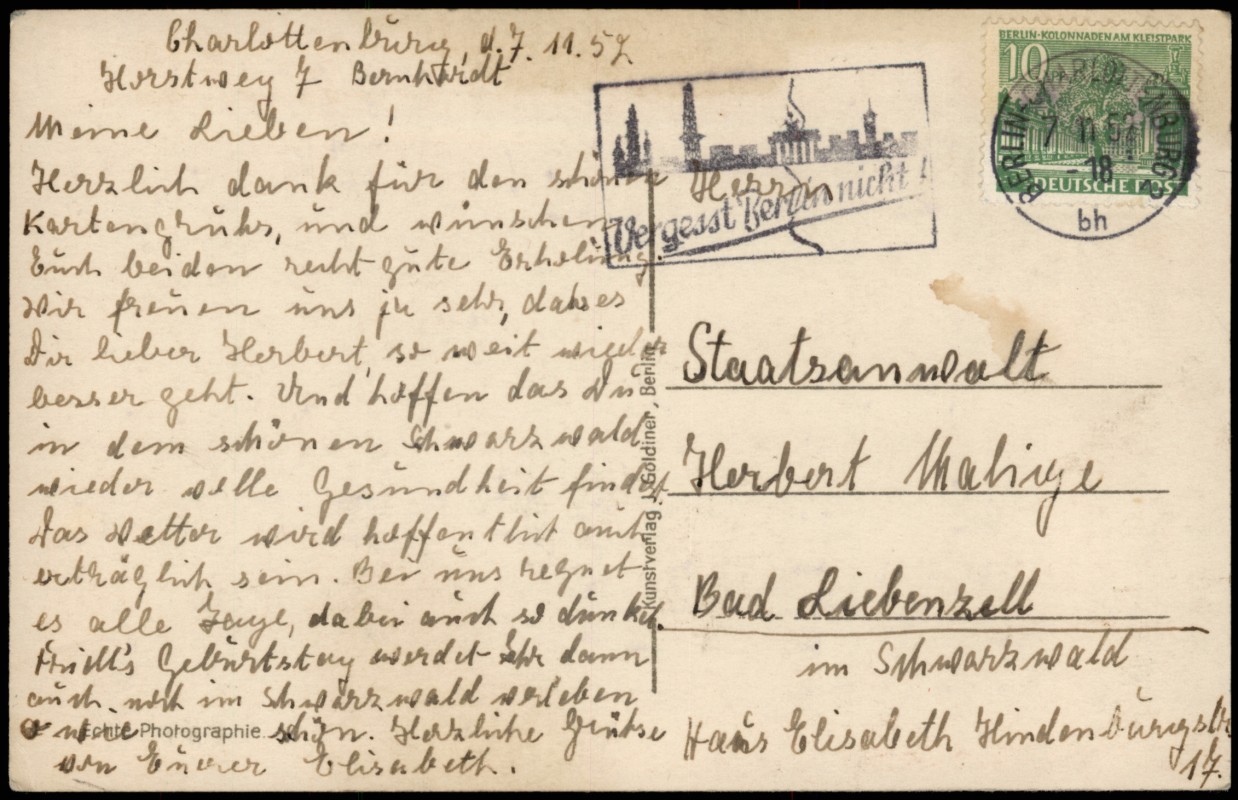 Charlottenburg, d. 7. 11. 52
Horstweg 7 Bernhardt
Meine Lieben!
Herzlich dank für den schönen
Kartengruhs, und wünschen
Euch beiden recht gute Erholung.
Wir freuen uns ja sehr, dahs es
Dir lieber Herbert, so weit wieder
besser geht. Und hoffen das Du
in dem schönen Schwarzwald
wieder volle Gesundheit findest.
Das Wetter wird hoffentlich auch
erträglich sein. Bei uns regnet
es alle Tage, dabei auch so dunkel.
Geburtstag werdet Ihr dann
auch noch im Schwarzwald verleben
wie schön. Herzliche Grühse
von Eurer Elisabeth.
Echte Photographie
Kunstverlag J. Goldiner, Berlin
Vergesst Berlin nicht!
BERLIN-KOLONNADEN AM KLEISTPARK
10
DEUTSCHE POST
BERLIN-CHARLOTTENBURG 2
7.11.52
-18
bh
Herrn
Staatsanwalt
Herbert
Bad Liebenzell
im Schwarzwald
Haus Elisabeth Hindenburgstr
17.